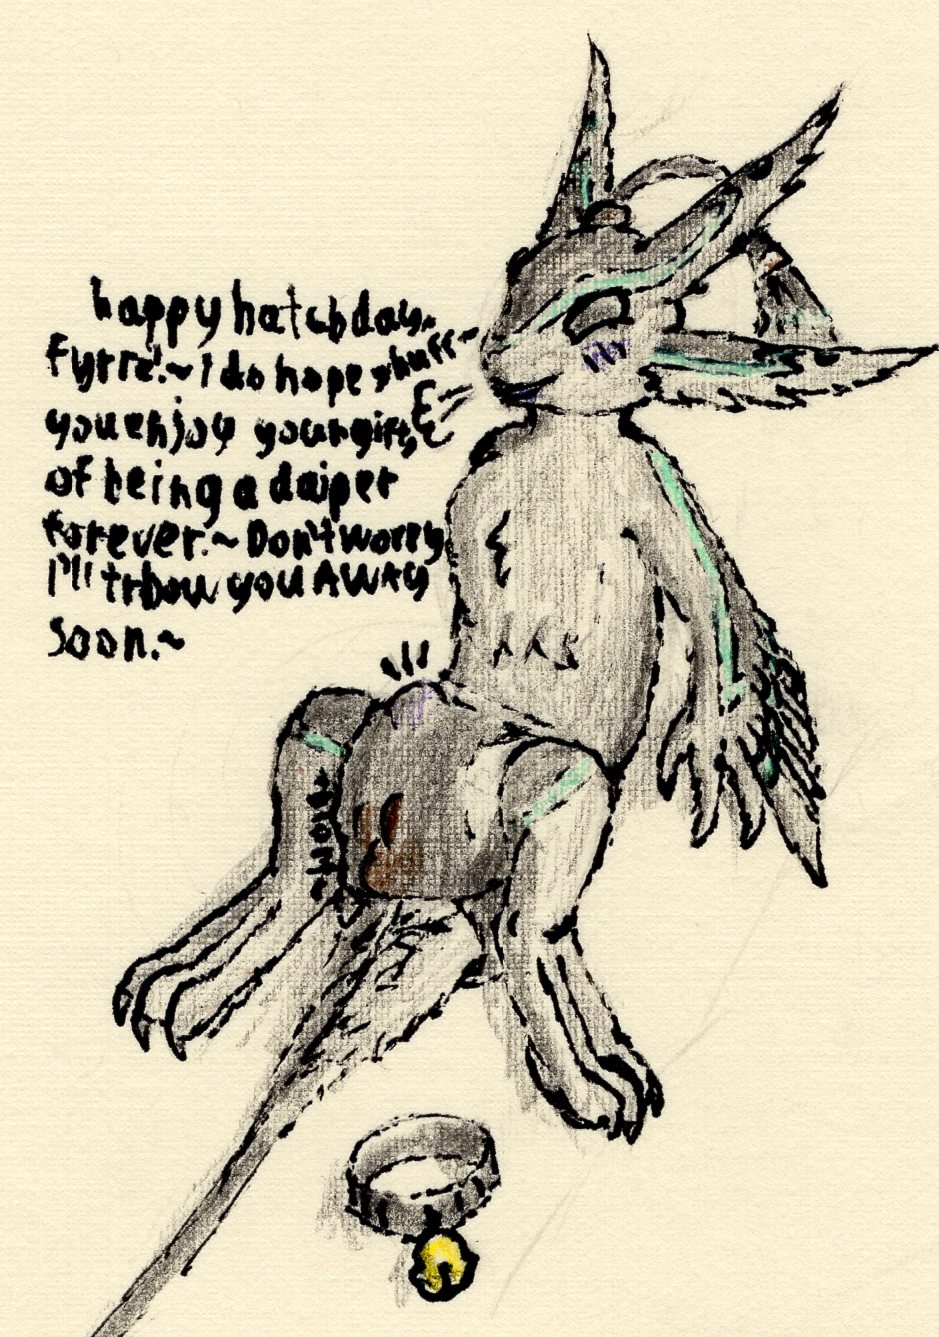 happy hatch day
Fyrra!~ I do hope
you enjoy your gift
of being a daiper
forever.~ Don't worry
I'll trhow you AWAY
soon.~
huff~